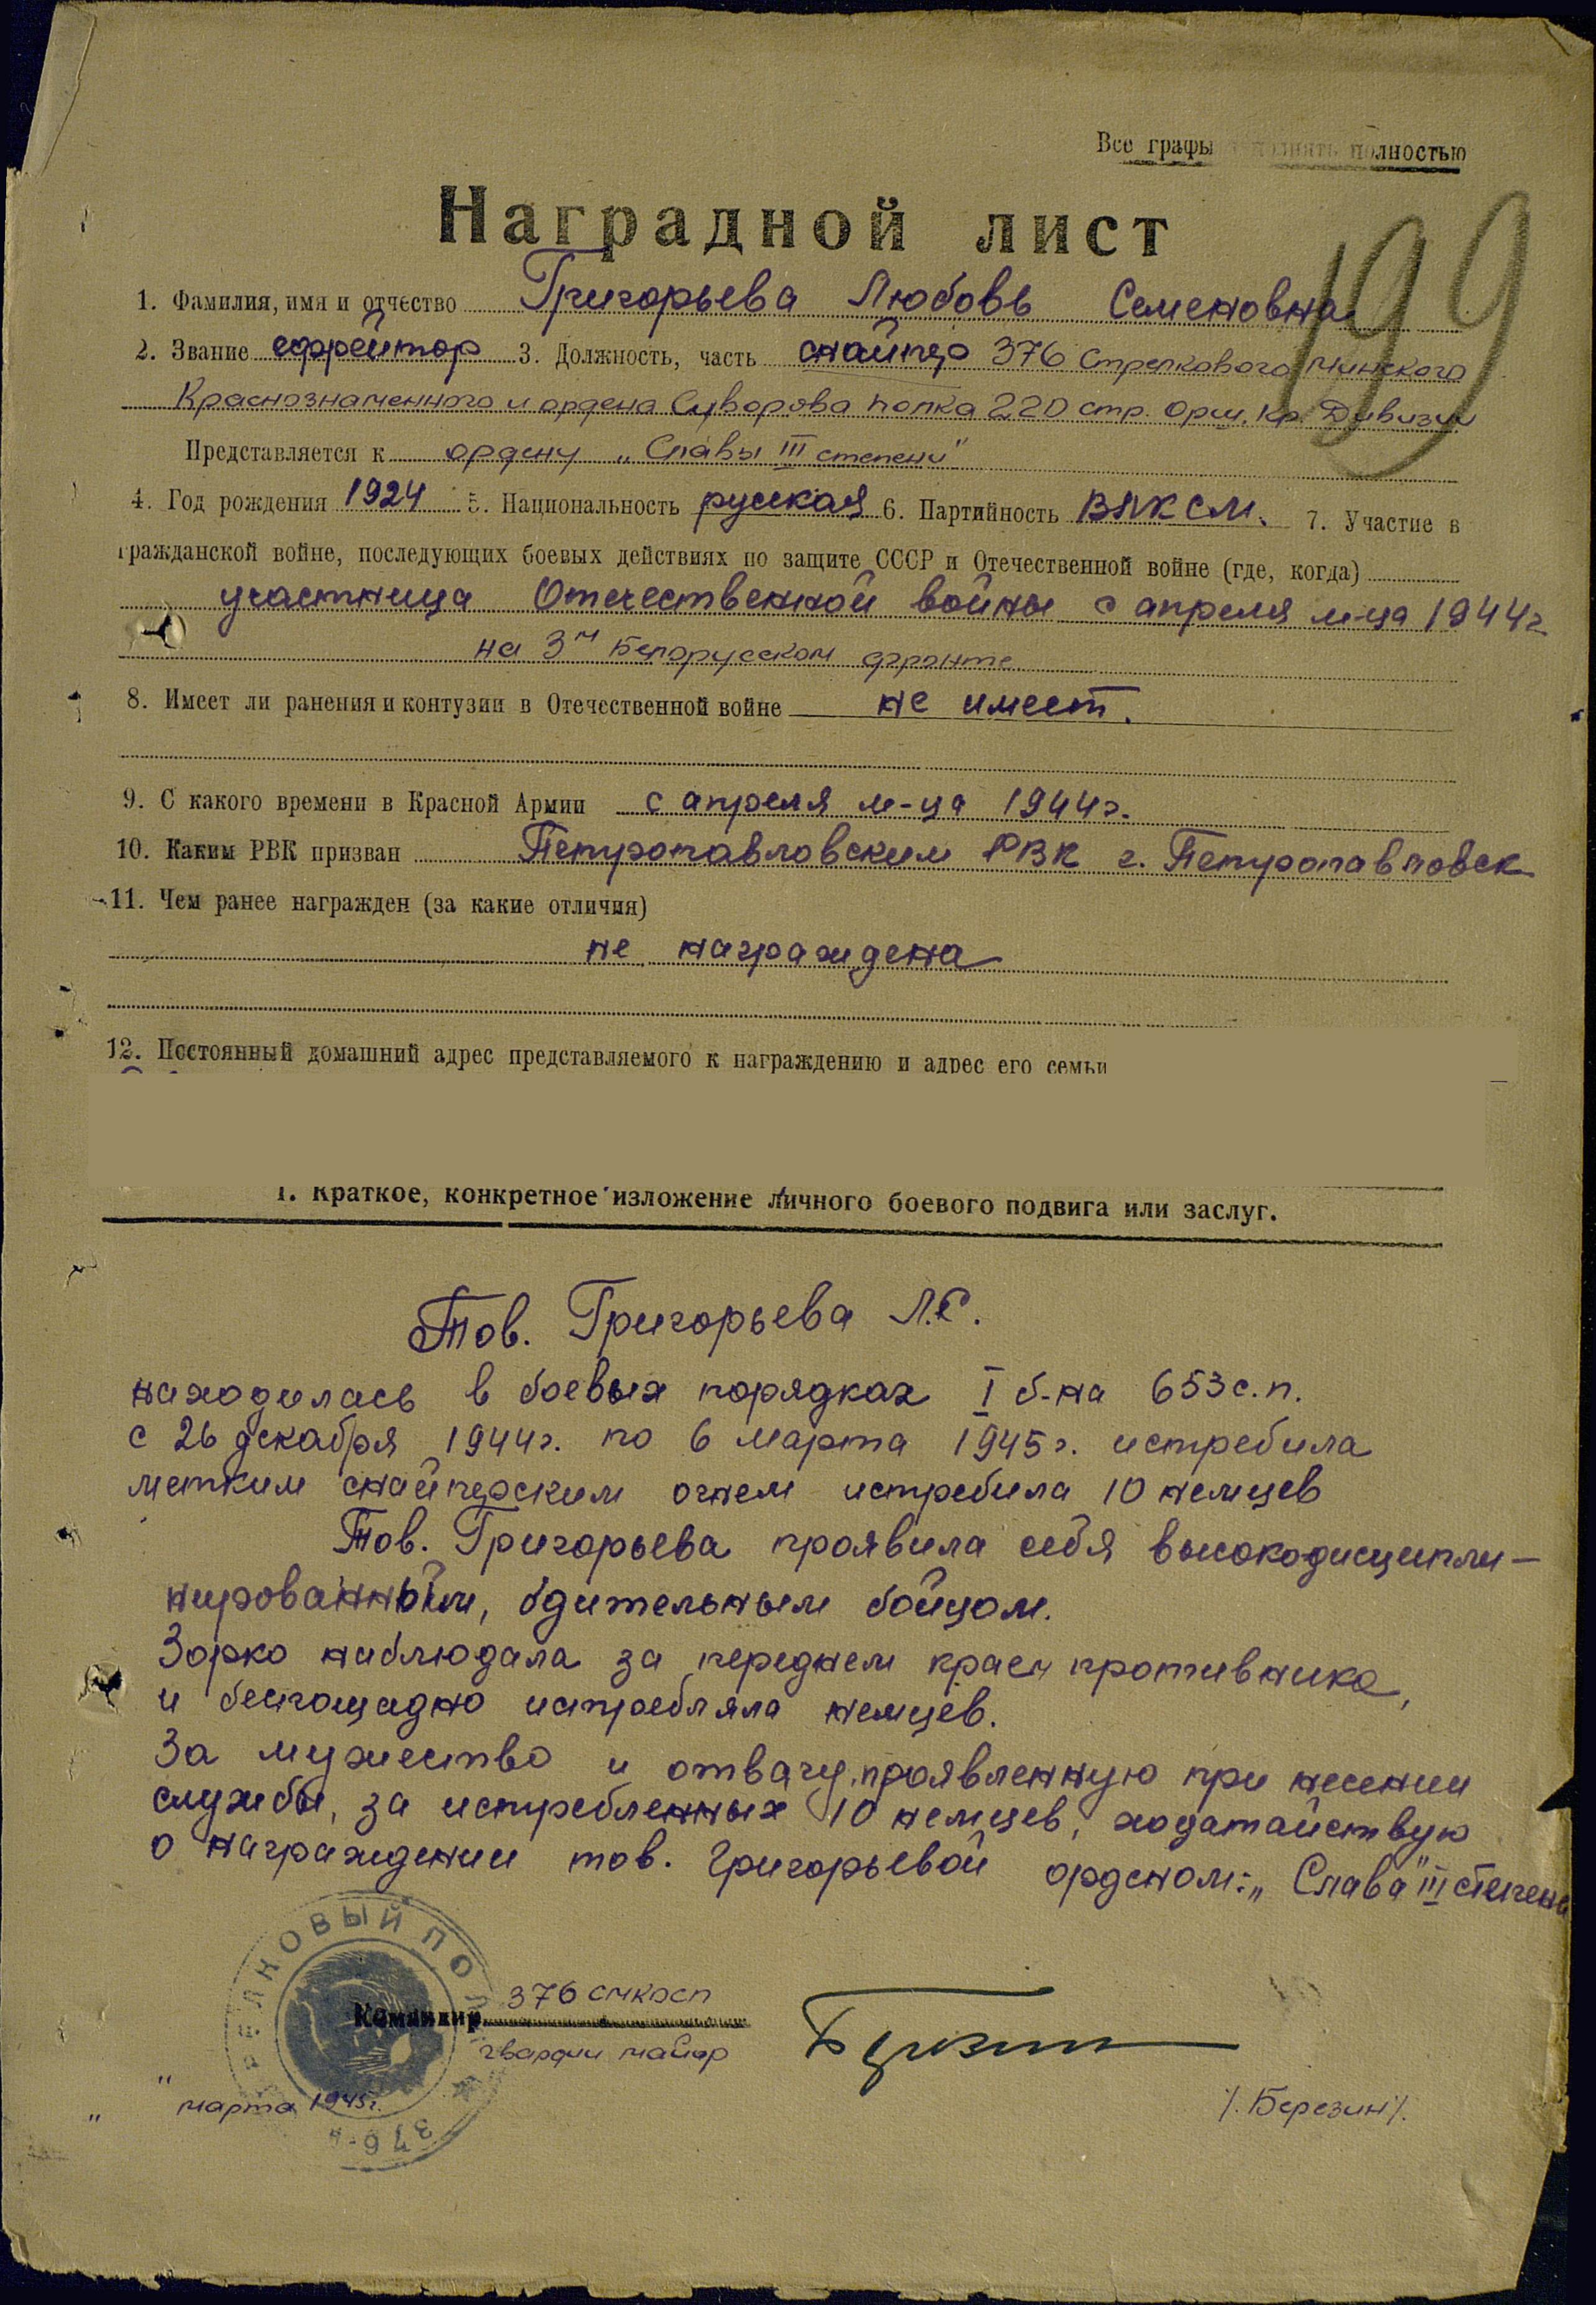 Все графы полностью
199
Наградной лист
1. Фамилия, имя и отчество Григорьева Любовь Семеновна
2. Звание ефрейтор 3. Должность, часть снайпер 376 Стрелкового Минского
Краснознаменного и ордена Суворова полка 220 стр. Орш. Кр. Дивизии
Представляется к ордену „Славы III степени"
4. Год рождения 1924 5. Национальность русская 6. Партийность ВЛКСМ. 7. Участие в
гражданской войне, последующих боевых действиях по защите СССР и Отечественной войне (где, когда)
участница Отечественной войны с апреля м-ца 1944г
на 3м Белорусском фронте
8. Имеет ли ранения и контузии в Отечественной войне не имеет.
9. С какого времени в Красной Армии с апреля м-ца 1944г.
10. Каким РВК призван Петропавловским РВК г. Петропавловск
11. Чем ранее награжден (за какие отличия)
не награждена
12. Постоянный домашний адрес представляемого к награждению и адрес его семьи
I. Краткое, конкретное изложение личного боевого подвига или заслуг.
Тов. Григорьева Л.С.
находилась в боевых порядках I б-на 653 с.п.
с 26 декабря 1944г. по 6 марта 1945г. истребила
метким снайперским огнем истребила 10 немцев
Тов. Григорьева проявила себя высокодисципли-
нированным, бдительным бойцом.
Зорко наблюдала за переднем краем противника,
и беспощадно истребляла немцев.
За мужество и отвагу, проявленную при несении
службы, за истребленных 10 немцев, ходатайствую
о награждении тов. Григорьевой орденом: „Слава" III степени
Командир 376 СМКОСП
гвардии майор
" " марта 1945г.
/. Березин /.
376